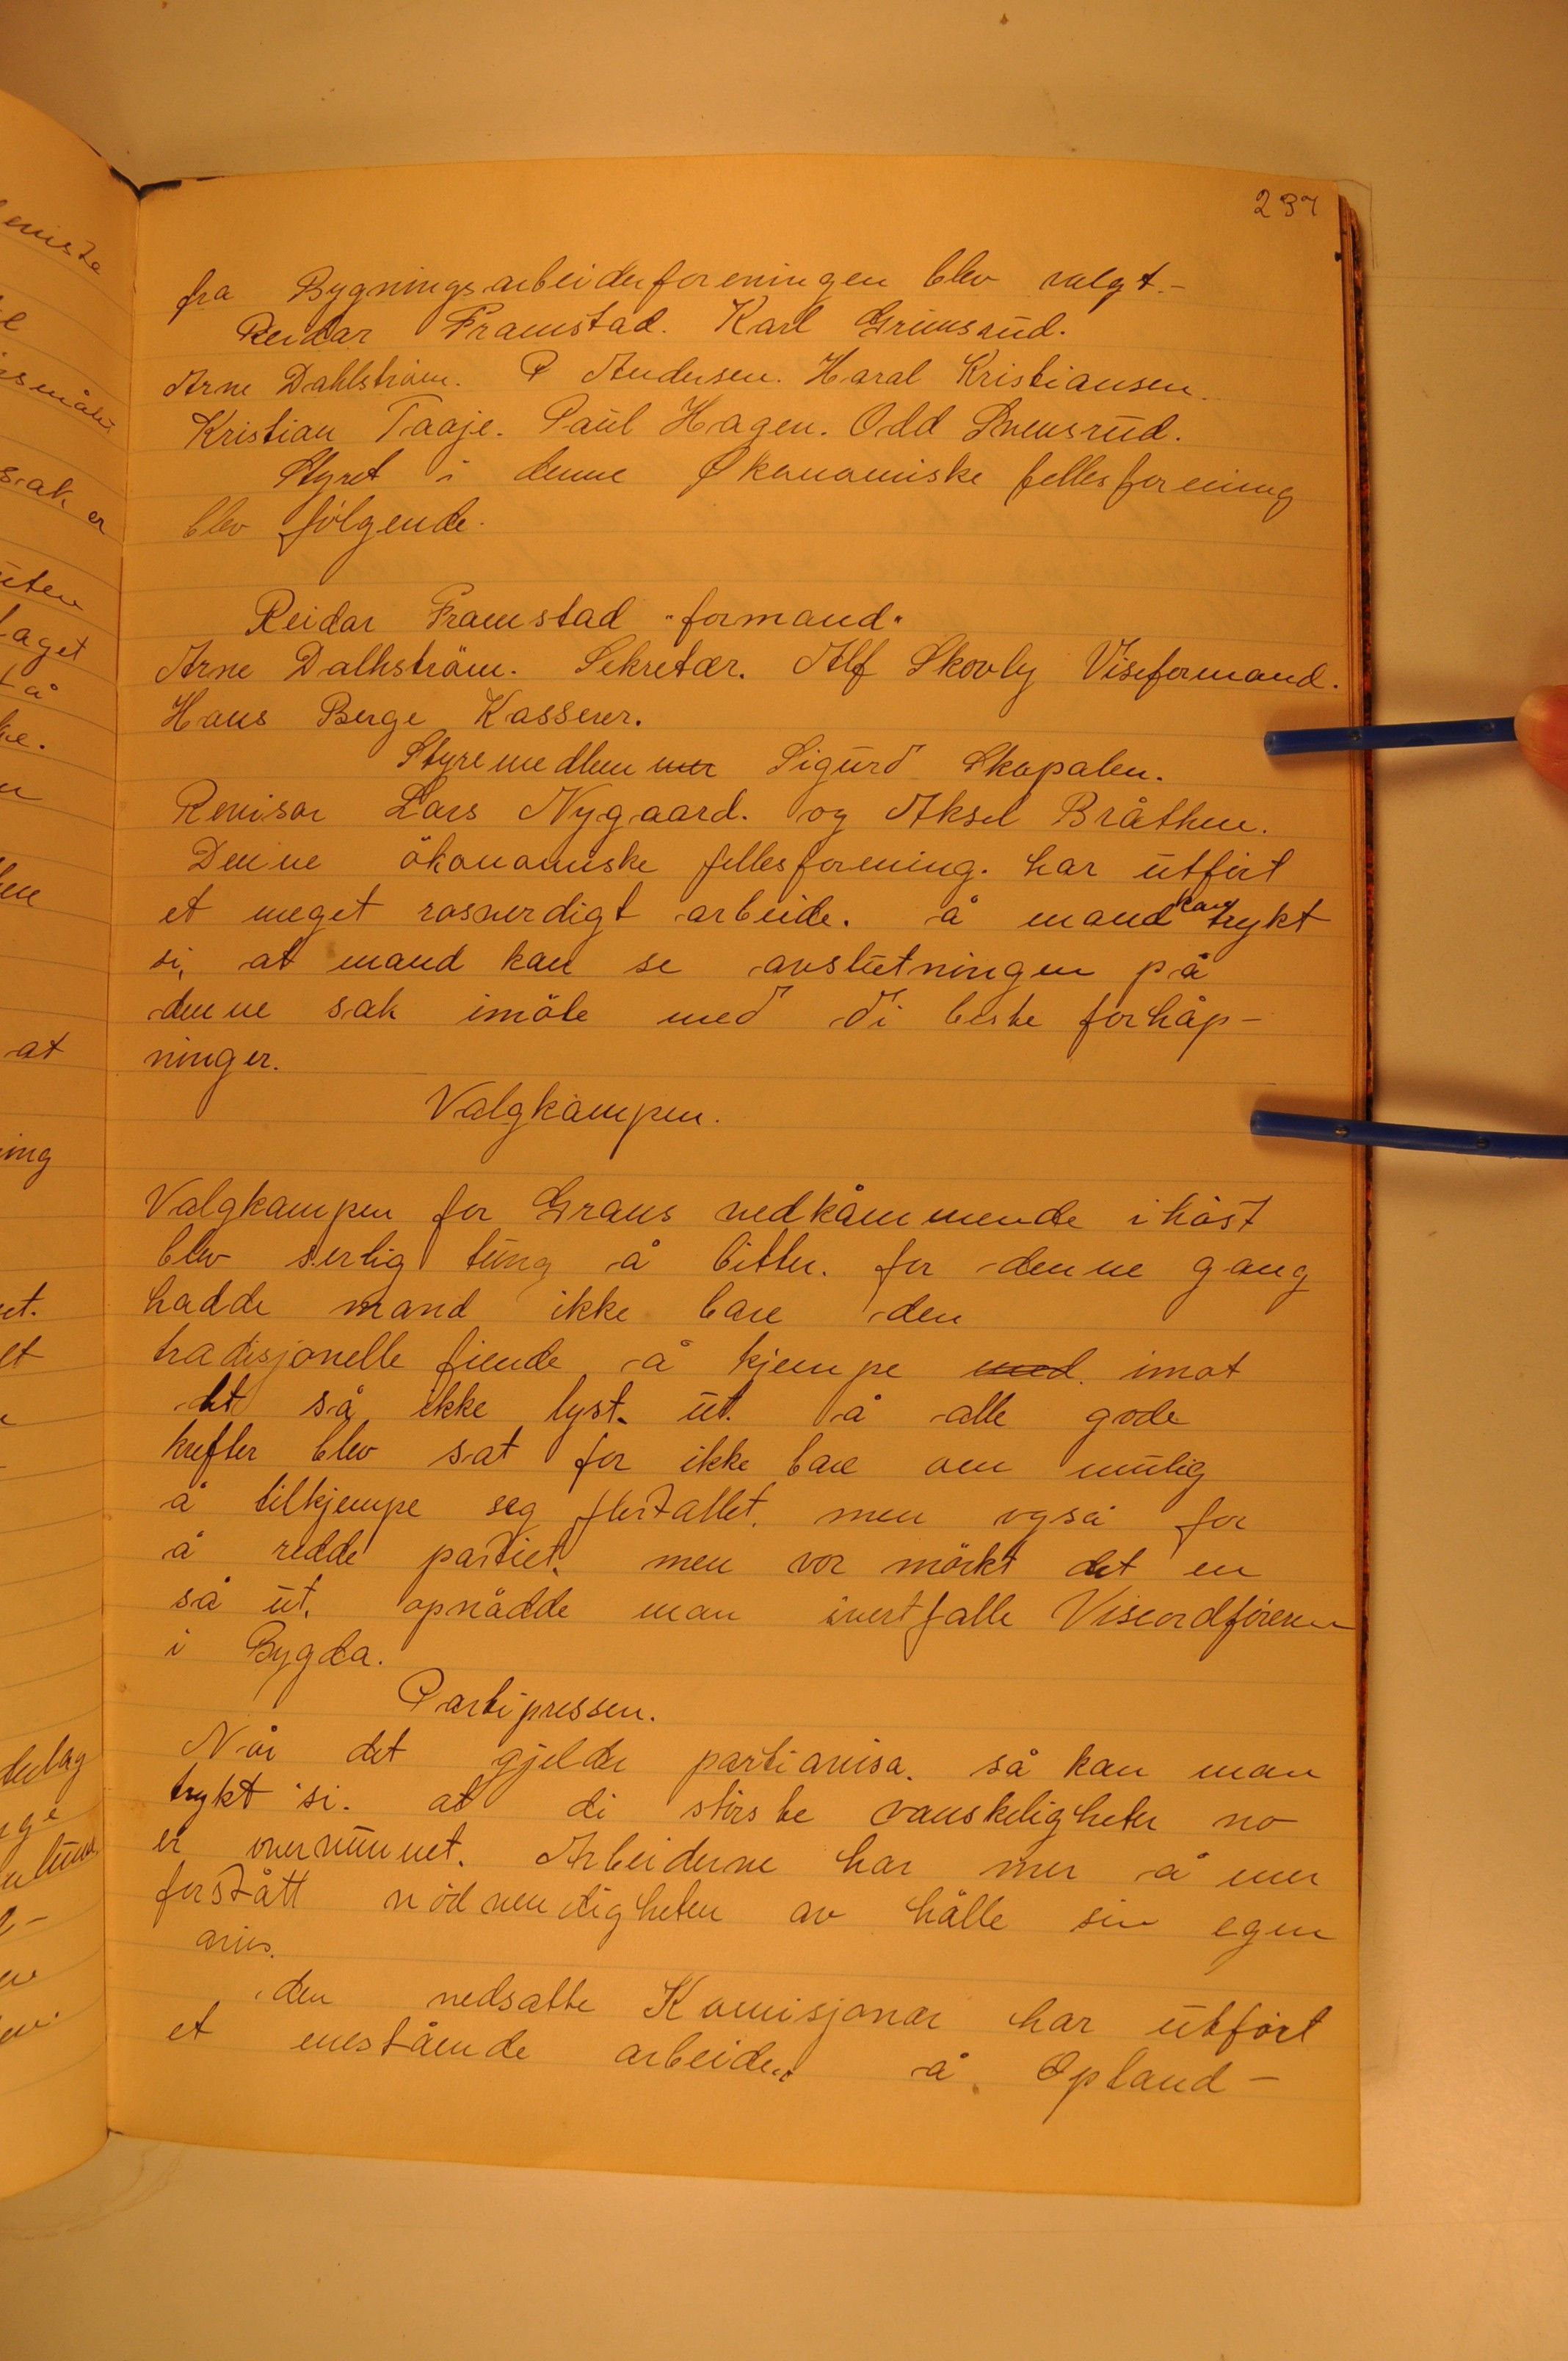 237
fra Bygningsarbeiderforeningen blev valgt.-
Reidar Framstad. Karl Grimsrud.
Arne Dahlström. P Andersen. Haral Kristiansen.
Kristian Taaje. Paul Hagen. Odd
Styret i denne Økonomiske fellesforening
blev følgende.
Reidar Framstad "formand"
Arne Dalhström. Sekretær. Alf Skovly Viseformand.
Hans Berge Kasserer.
Styremedlemmer Sigurd Skapalen.
Revisor Lars Nygaard. og Aksel Bråthen.
Denne ökonomiske fellesforening. har utfört
et meget rosverdigt arbeide. å mand kan trykt
si, at mand kan se avslutningen på
denne sak imöte med di beste forhåp-
ninger.
Valgkampen.
Valgkampen for Grans vedkåmmende i höst
blev serlig tung å bitter. for denne gang
hadde mand ikke bare den
tradisjonelle fiende å kjempe med. imot
det så ikke lyst. ut. å alle gode
krefter blev sat for ikke bare om mulig
å tilkjempe seg flertallet. men også for
å redde partiet. men vor mörkt det en
så ut. opnådde man ivertfalle Viseordföreren
i Bygda.
Partipressen.
Når det gjelder partiavisa. så kan man
trykt si. at di störste vanskeligheter no
er overvunnet. Arbeiderne har mer å mer
forstått nödvendigheten av hålle sin egen
avis.
den nedsatte Komisjonar har utfört
et enestående arbeide. å Opland-
emiste
sak er
uten
laget
at
ing
et